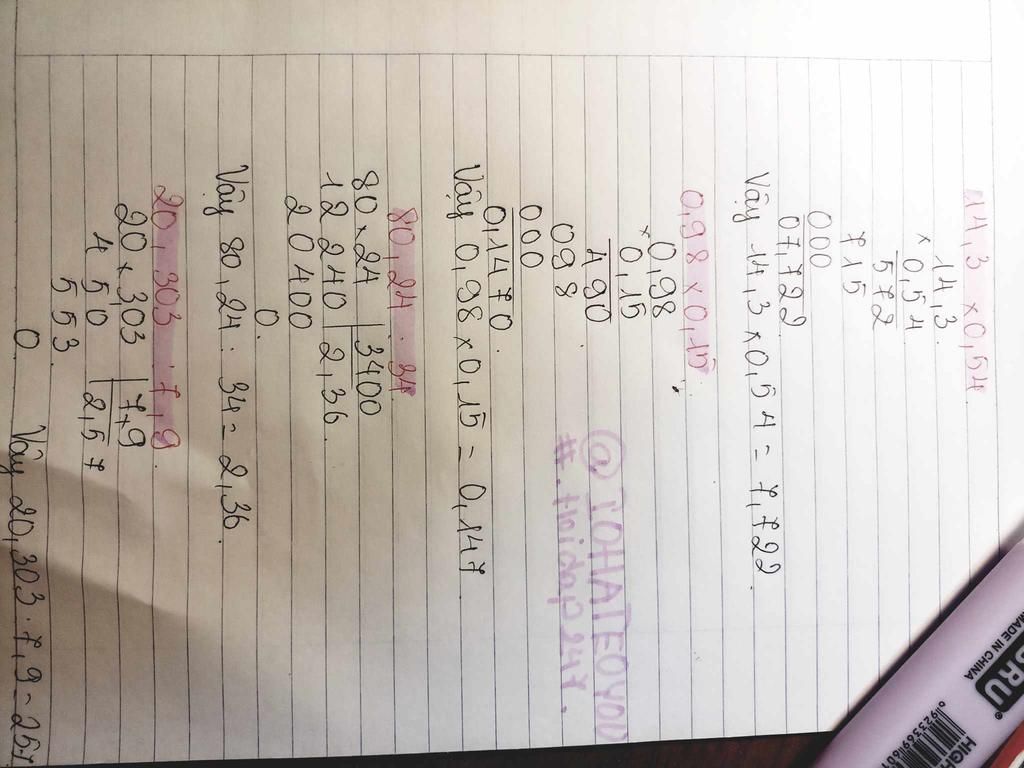 14,3 × 0,54
14,3
× 0,54
572
715
000
07,722
Vậy 14,3 × 0,54 = 7,722
0,98 × 0,15
0,98
× 0,15
490
098
000
0,1470
Vậy 0,98 × 0,15 = 0,147
@ TOHATEOYOO
#.Hoidap247.
80,24 : 34
80×24 3400
12 240 2,36
2 0400
0
Vậy 80,24 : 34 = 2,36.
20,303 : 7,9
20×303 7,9
4 50 2,57
553
0
Vậy 20,303 : 7,9 = 257
MADE IN CHINA
HIGH